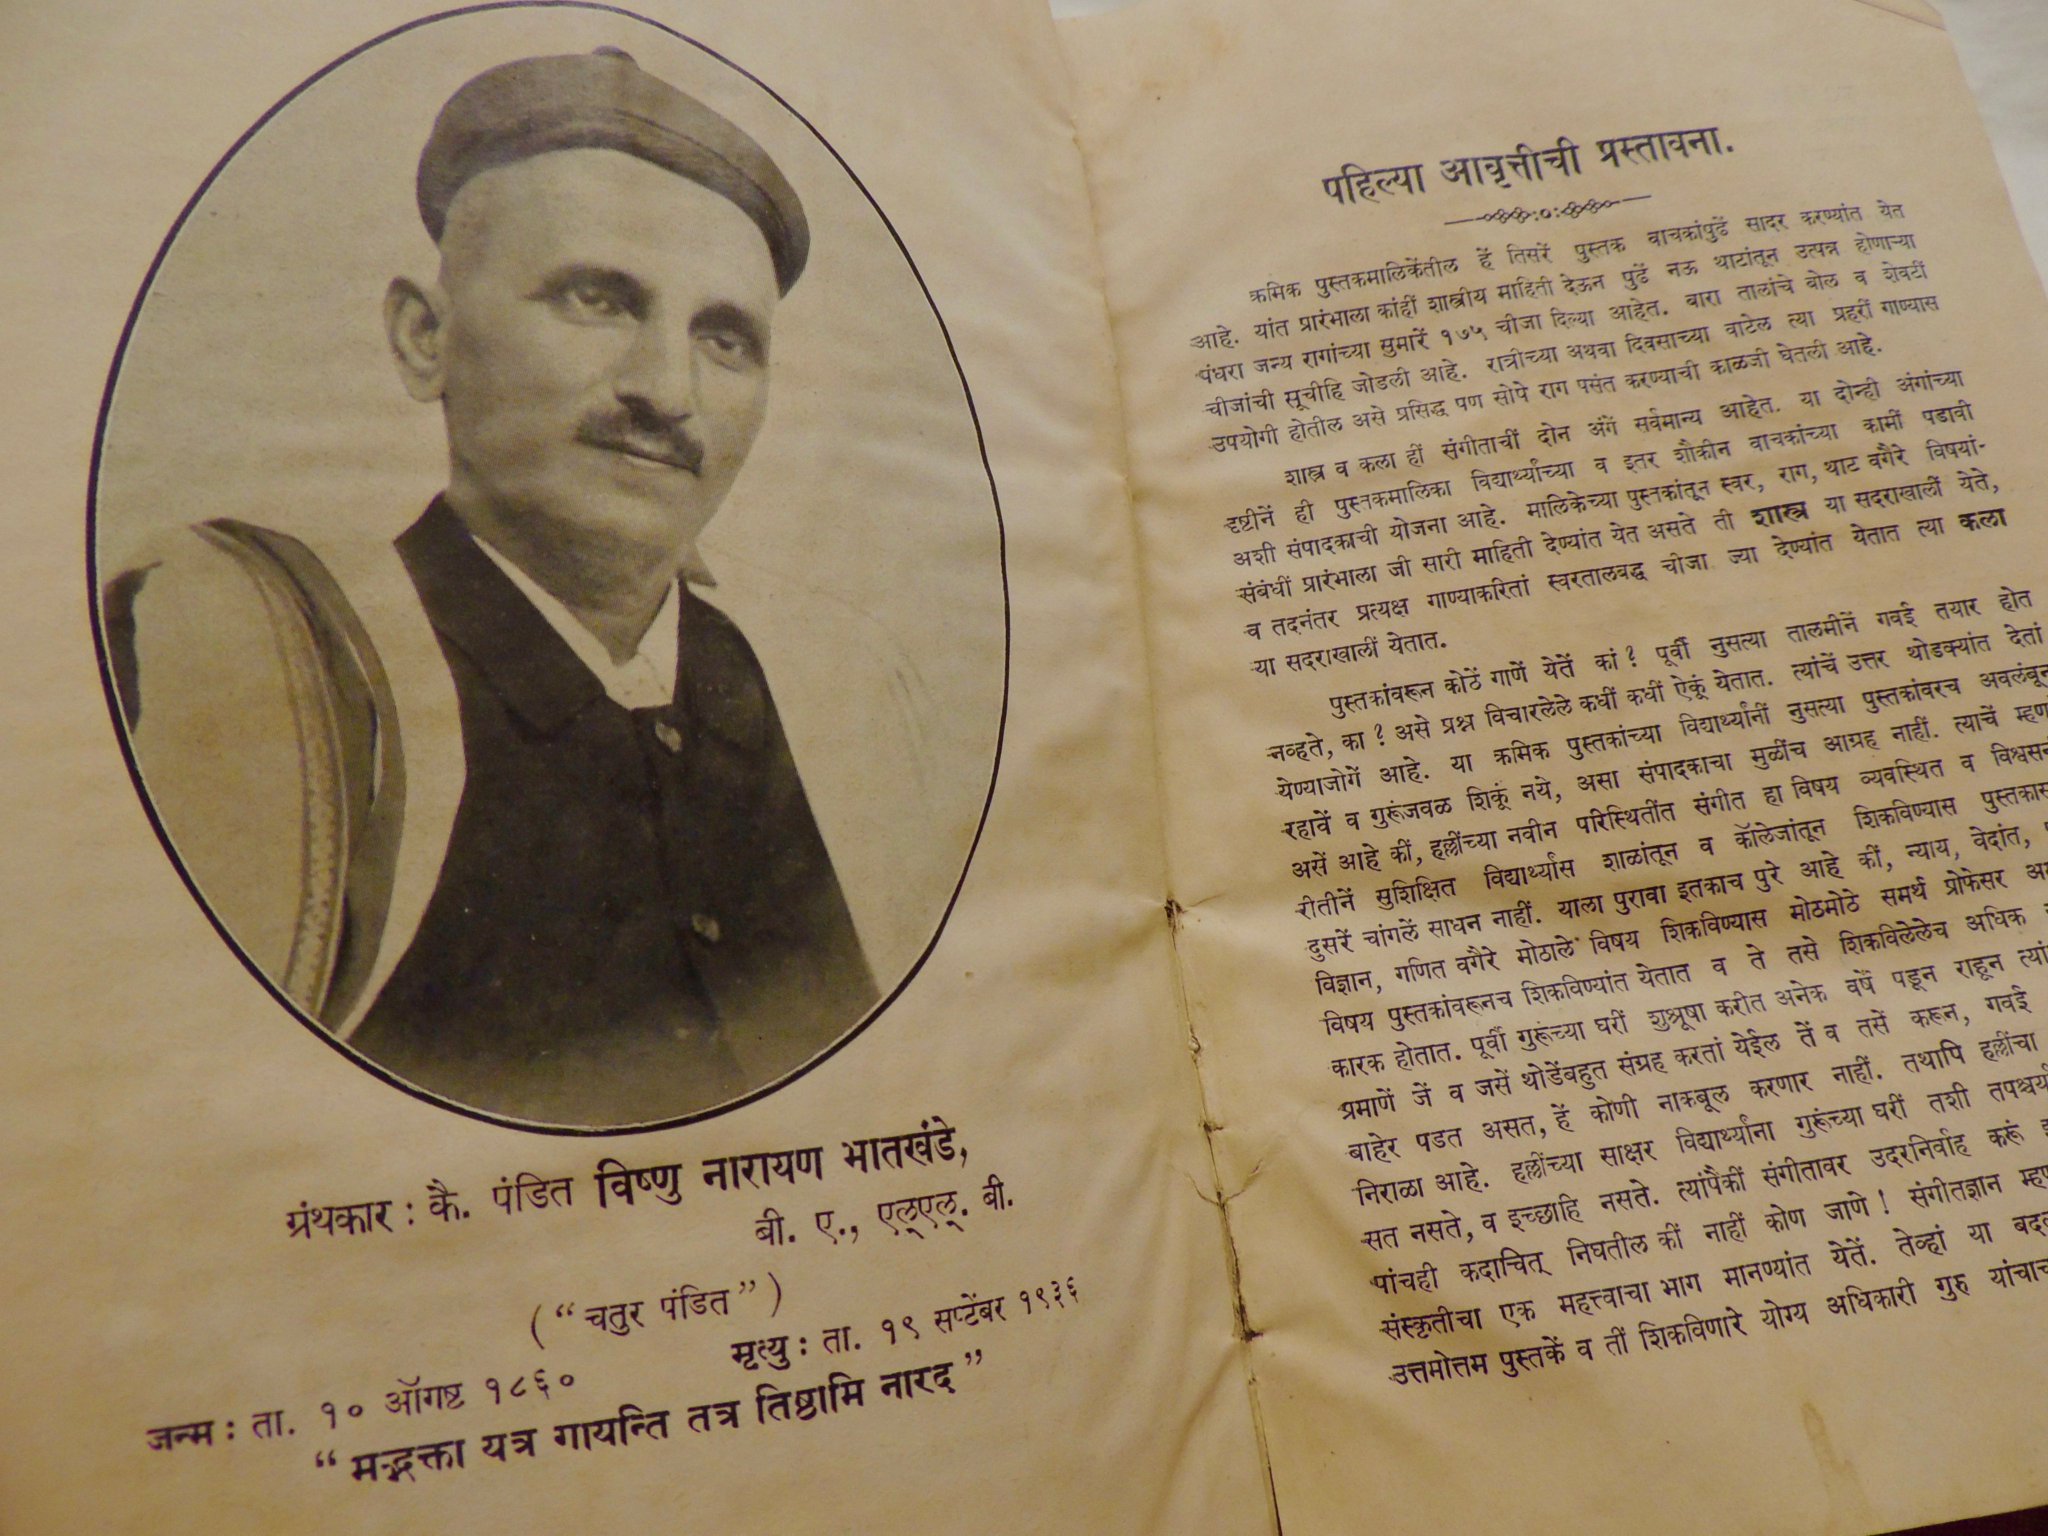 ग्रंथकार : कै. पंडित विष्णु नारायण भातखंडे,
बी. ए., एल्एल्. बी.
(“चतुर पंडित”)
जन्म : ता. १० ऑगष्ट १८६० मृत्यु : ता. १९ सप्टेंबर १९३६
“मद्भक्ता यत्र गायन्ति तत्र तिष्ठामि नारद”
पहिल्या आवृत्तीची प्रस्तावना.
क्रमिक पुस्तकमालिकेंतील हें तिसरें पुस्तक वाचकांपुढें सादर करण्यांत येत
आहे. यांत प्रारंभाला कांहीं शास्त्रीय माहिती देऊन पुढें नऊ थाटांतून उत्पन्न होणाऱ्या
पंधरा जन्य रागांच्या सुमारें १७५ चीजा दिल्या आहेत. बारा तालांचे बोल व शेवटीं
चीजांची सूचीहि जोडली आहे. रात्रीच्या अथवा दिवसाच्या वाटेल त्या प्रहरीं गाण्यास
उपयोगी होतील असे प्रसिद्ध पण सोपे राग पसंत करण्याची काळजी घेतली आहे.
शास्त्र व कला हीं संगीताचीं दोन अंगें सर्वमान्य आहेत. या दोन्ही अंगांच्या
दृष्टीनें ही पुस्तकमालिका विद्यार्थ्यांच्या व इतर शौकीन वाचकांच्या कामीं पडावी
अशी संपादकाची योजना आहे. मालिकेच्या पुस्तकांतून स्वर, राग, थाट वगैरे विषयां-
संबंधीं प्रारंभाला जी सारी माहिती देण्यांत येत असते ती शास्त्र या सदराखालीं येते,
व तदनंतर प्रत्यक्ष गाण्याकरितां स्वरतालबद्ध चीजा ज्या देण्यांत येतात त्या कला
या सदराखालीं येतात.
पुस्तकांवरून कोठें गाणें येतें कां ? पूर्वीं नुसत्या तालमीनें गवई तयार होत
नव्हते, का ? असे प्रश्न विचारलेले कधीं कधीं ऐकूं येतात. त्यांचें उत्तर थोडक्यांत देतां
येण्याजोगें आहे. या क्रमिक पुस्तकांच्या विद्यार्थ्यांनीं नुसत्या पुस्तकांवरच अवलंबून
रहावें व गुरूंजवळ शिकूं नये, असा संपादकाचा मुळींच आग्रह नाहीं. त्याचें
असें आहे कीं, हल्लींच्या नवीन परिस्थितींत संगीत हा विषय व्यवस्थित व
रीतीनें सुशिक्षित विद्यार्थ्यांस शाळांतून व कॉलेजांतून शिकविण्यास
दुसरें चांगलें साधन नाहीं. याला पुरावा इतकाच पुरे आहे कीं, न्याय, वेदांत,
विज्ञान, गणित वगैरे मोठाले विषय शिकविण्यास मोठमोठे समर्थ प्रोफेसर
विषय पुस्तकांवरूनच शिकविण्यांत येतात व ते तसे शिकविलेलेच अधिक
कारक होतात. पूर्वीं गुरूंच्या घरीं शुश्रूषा करीत अनेक वर्षें पडून राहून
प्रमाणें जें व जसें थोडेंबहुत संग्रह करतां येईल तें व तसें करून, गवई
बाहेर पडत असत, हें कोणी नाकबूल करणार नाहीं. तथापि हल्लींचा
निराळा आहे. हल्लींच्या साक्षर विद्यार्थ्यांना गुरूंच्या घरीं तशी
सत नसते, व इच्छाहि नसते. त्यांपैकीं संगीतावर उदरनिर्वाह करूं
पांचही कदाचित् निघतील कीं नाहीं कोण जाणे ! संगीतज्ञान
संस्कृतीचा एक महत्त्वाचा भाग मानण्यांत येतें. तेव्हां या
उत्तमोत्तम पुस्तकें व तीं शिकविणारे योग्य अधिकारी गुरु